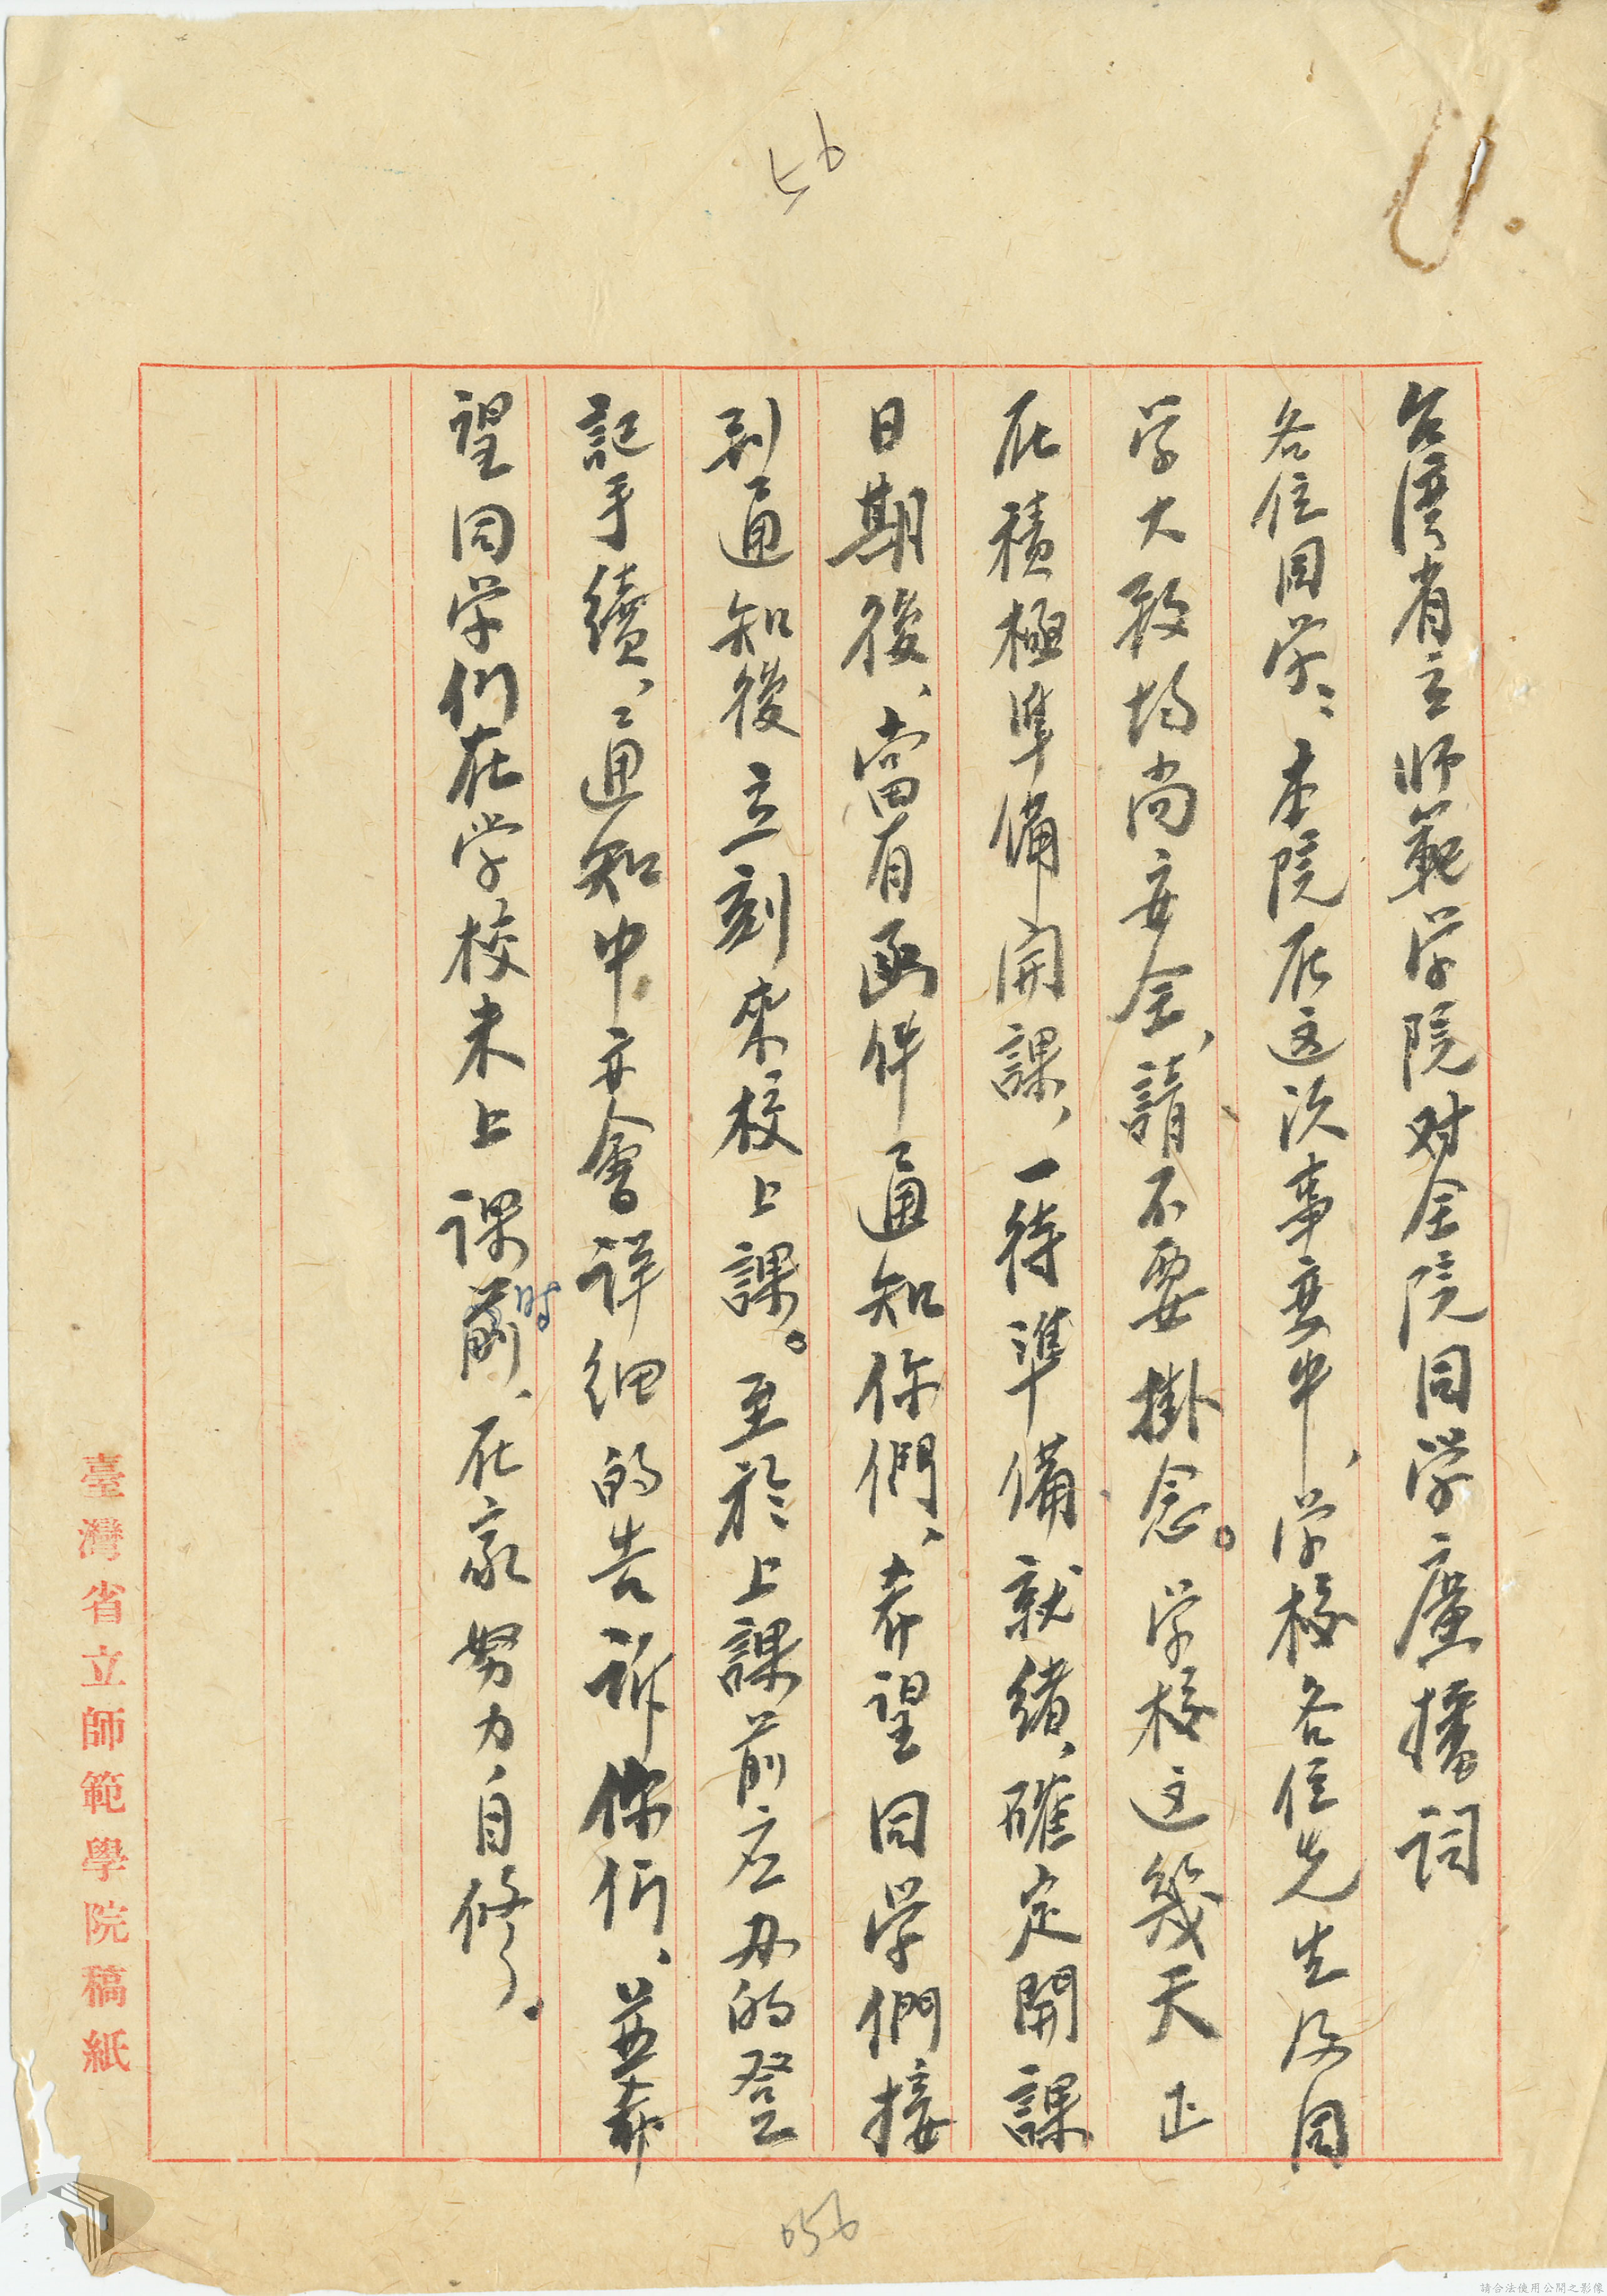 56
台湾省立师範学院对全院同学廣播词
各位同学：本院在这次事变中，学校各位先生及同
学大致均尚安全，請不要掛念。学校这幾天正
在積極準備開課，一待準備就绪，確定開課
日期後，當有函件通知你們，希望同学們接
到通知後立刻來校上課。至於上課前应办的登
記手續，通知中亦會详细的告诉你们，並希
望同学们在学校未上课前时，在家努力自修。
臺灣省立師範學院稿紙
056
請合法使用公開之影像